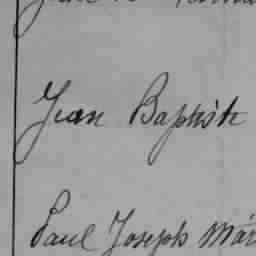 Jean Baptiste
Paul Joseph Mar